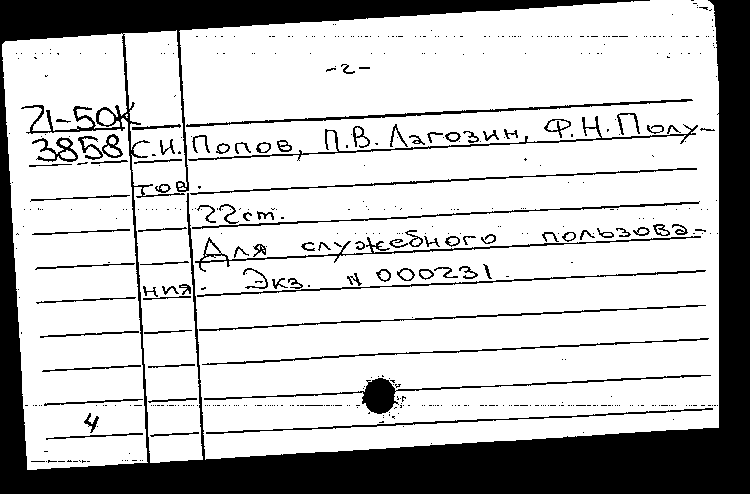 -2-
71-50К
3858 С.И. Попов, П.В. Лагозин, Ф.Н. Полу-
тов.
22 cm.
Для служебного пользова-
ния. Экз. N 000231.
4